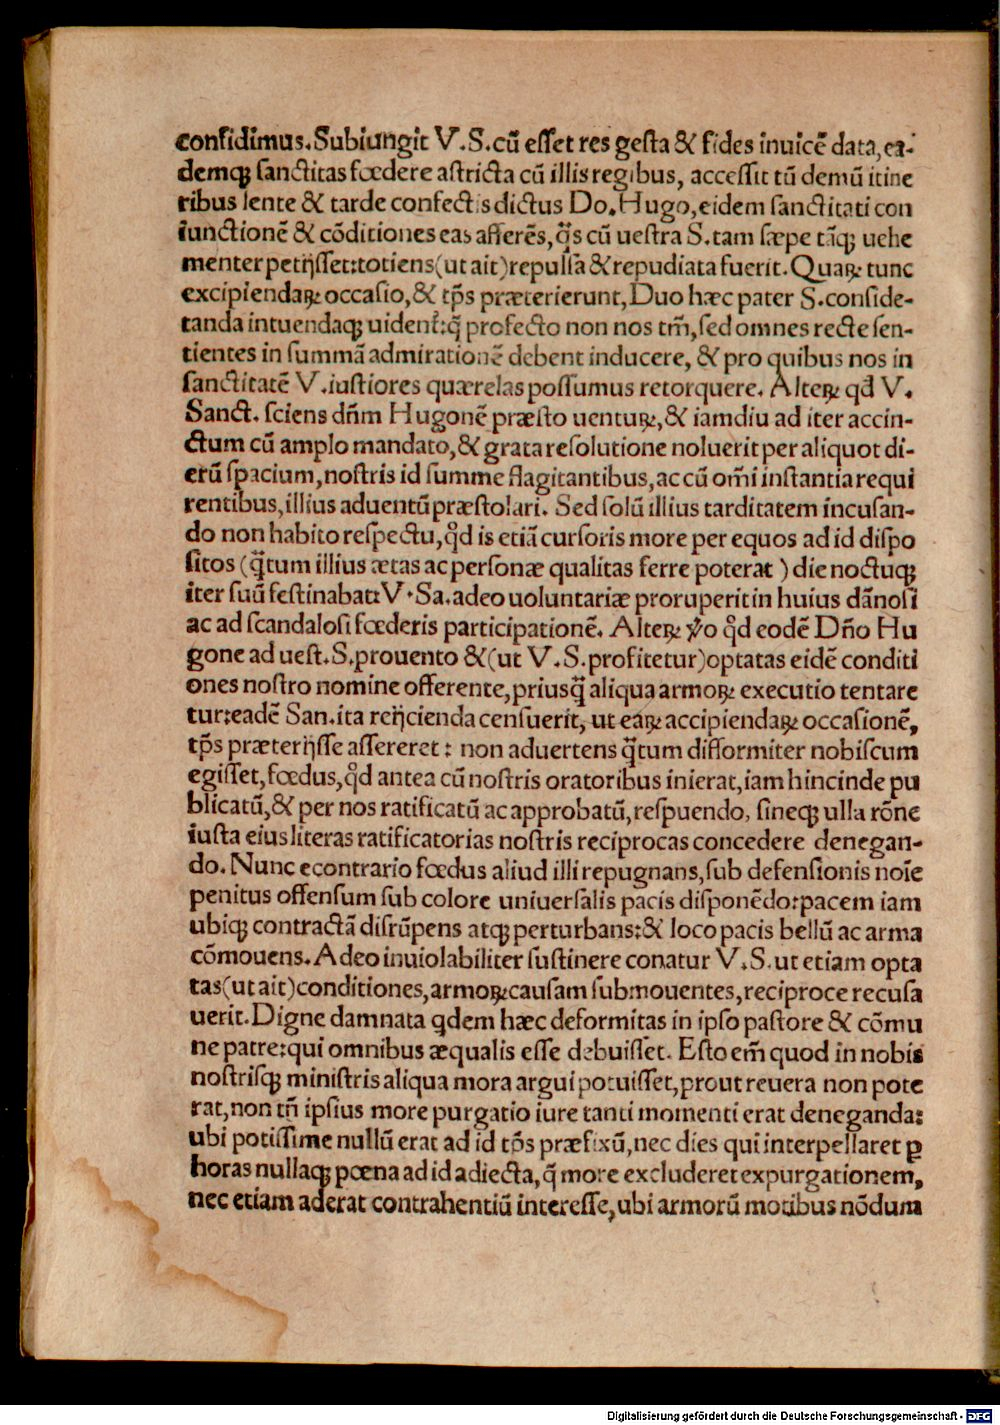 confidimus. Subiungit V. S. cũ eſſet res geſta & fides inuicẽ data, ea-
demqꝫ ſanctitas fœdere aſtricta cũ illis regibus, acceſſit tũ demũ itine
ribus lente & tarde confectis dictus Do. Hugo, eidem ſanctitati con
iunctionẽ & cõditiones eas afferẽs, q̃s cũ ueſtra S. tam ſæpe tãqꝫ uehe
menter petijſſet: totiens (ut ait) repulſa & repudiata fuerit. Quaꝝ tunc
excipiendaꝝ occaſio, & tp̃s præterierunt, Duo hæc pater S. conſide-
randa intuendaqꝫ uidenť: q̃ profecto non nos tm̃, ſed omnes recte ſen-
tientes in ſummã admirationẽ debent inducere, & pro quibus nos in
ſanctitatẽ V. iuſtiores quærelas poſſumus retorquere. Alteꝝ qđ V.
Sanct. ſciens dñm Hugonẽ præſto uentuꝝ, & iamdiu ad iter accin-
ctum cũ amplo mandato, & grata reſolutione noluerit per aliquot di-
erũ ſpacium, noſtris id ſumme flagitantibus, ac cũ om̃i inſtantia requi
rentibus, illius aduentũ præſtolari. Sed ſolũ illius tarditatem incuſan-
do non habito reſpectu, qđ is etiã curſoris more per equos ad id diſpo
ſitos (q̃tum illius ætas ac perſonæ qualitas ferre poterat) die noctuqꝫ
iter ſuũ feſtinabat: V. Sa. adeo uoluntariæ proruperit in huius dãnoſi
ac ad ſcandaloſi fœderis participationẽ. Alteꝝ ꝟo qđ eodẽ Dño Hu
gone ad ueſt. S. prouento & (ut V. S. profitetur) optatas eidẽ conditi
ones noſtro nomine offerente, priusq̃ aliqua armoꝝ executio tentare
tur: eadẽ San. ita reijcienda cenſuerit, ut eaꝝ accipiendaꝝ occaſionẽ,
tp̃s præterijſſe aſſereret: non aduertens q̃tum difformiter nobiſcum
egiſſet, fœdus, qđ antea cũ noſtris oratoribus inierat, iam hincinde pu
blicatũ, & per nos ratificatũ ac approbatũ, reſpuendo, ſineqꝫ ulla rõne
iuſta eius literas ratificatorias noſtris reciprocas concedere denegan-
do. Nunc econtrario fœdus aliud illi repugnans, ſub defenſionis noĩe
penitus offenſum ſub colore uniuerſalis pacis diſponẽdo: pacem iam
ubiqꝫ contractã diſrũpens atqꝫ perturbans: & loco pacis bellũ ac arma
cõmouens. Adeo inuiolabiliter ſuſtinere conatur V. S. ut etiam opta
tas (ut ait) conditiones, armoꝝ cauſam ſubmouentes, reciproce recuſa
uerit. Digne damnata qdem hæc deformitas in ipſo paſtore & cõmu
ne patre: qui omnibus æqualis eſſe debuiſſet. Eſto em̃ quod in nobis
noſtriſqꝫ miniſtris aliqua mora argui potuiſſet, prout reuera non pote
rat, non tñ ipſius more purgatio iure tanti momenti erat deneganda:
ubi potiſſime nullũ erat ad id tp̃s præfixũ, nec dies qui interpellaret ꝑ
horas nullaqꝫ pœna ad id adiecta, q̃ more excluderet expurgationem,
nec etiam aderat contrahentiũ intereſſe, ubi armorũ motibus nõdum
Digitalisierung gefördert durch die Deutsche Forschungsgemeinschaft - DFG